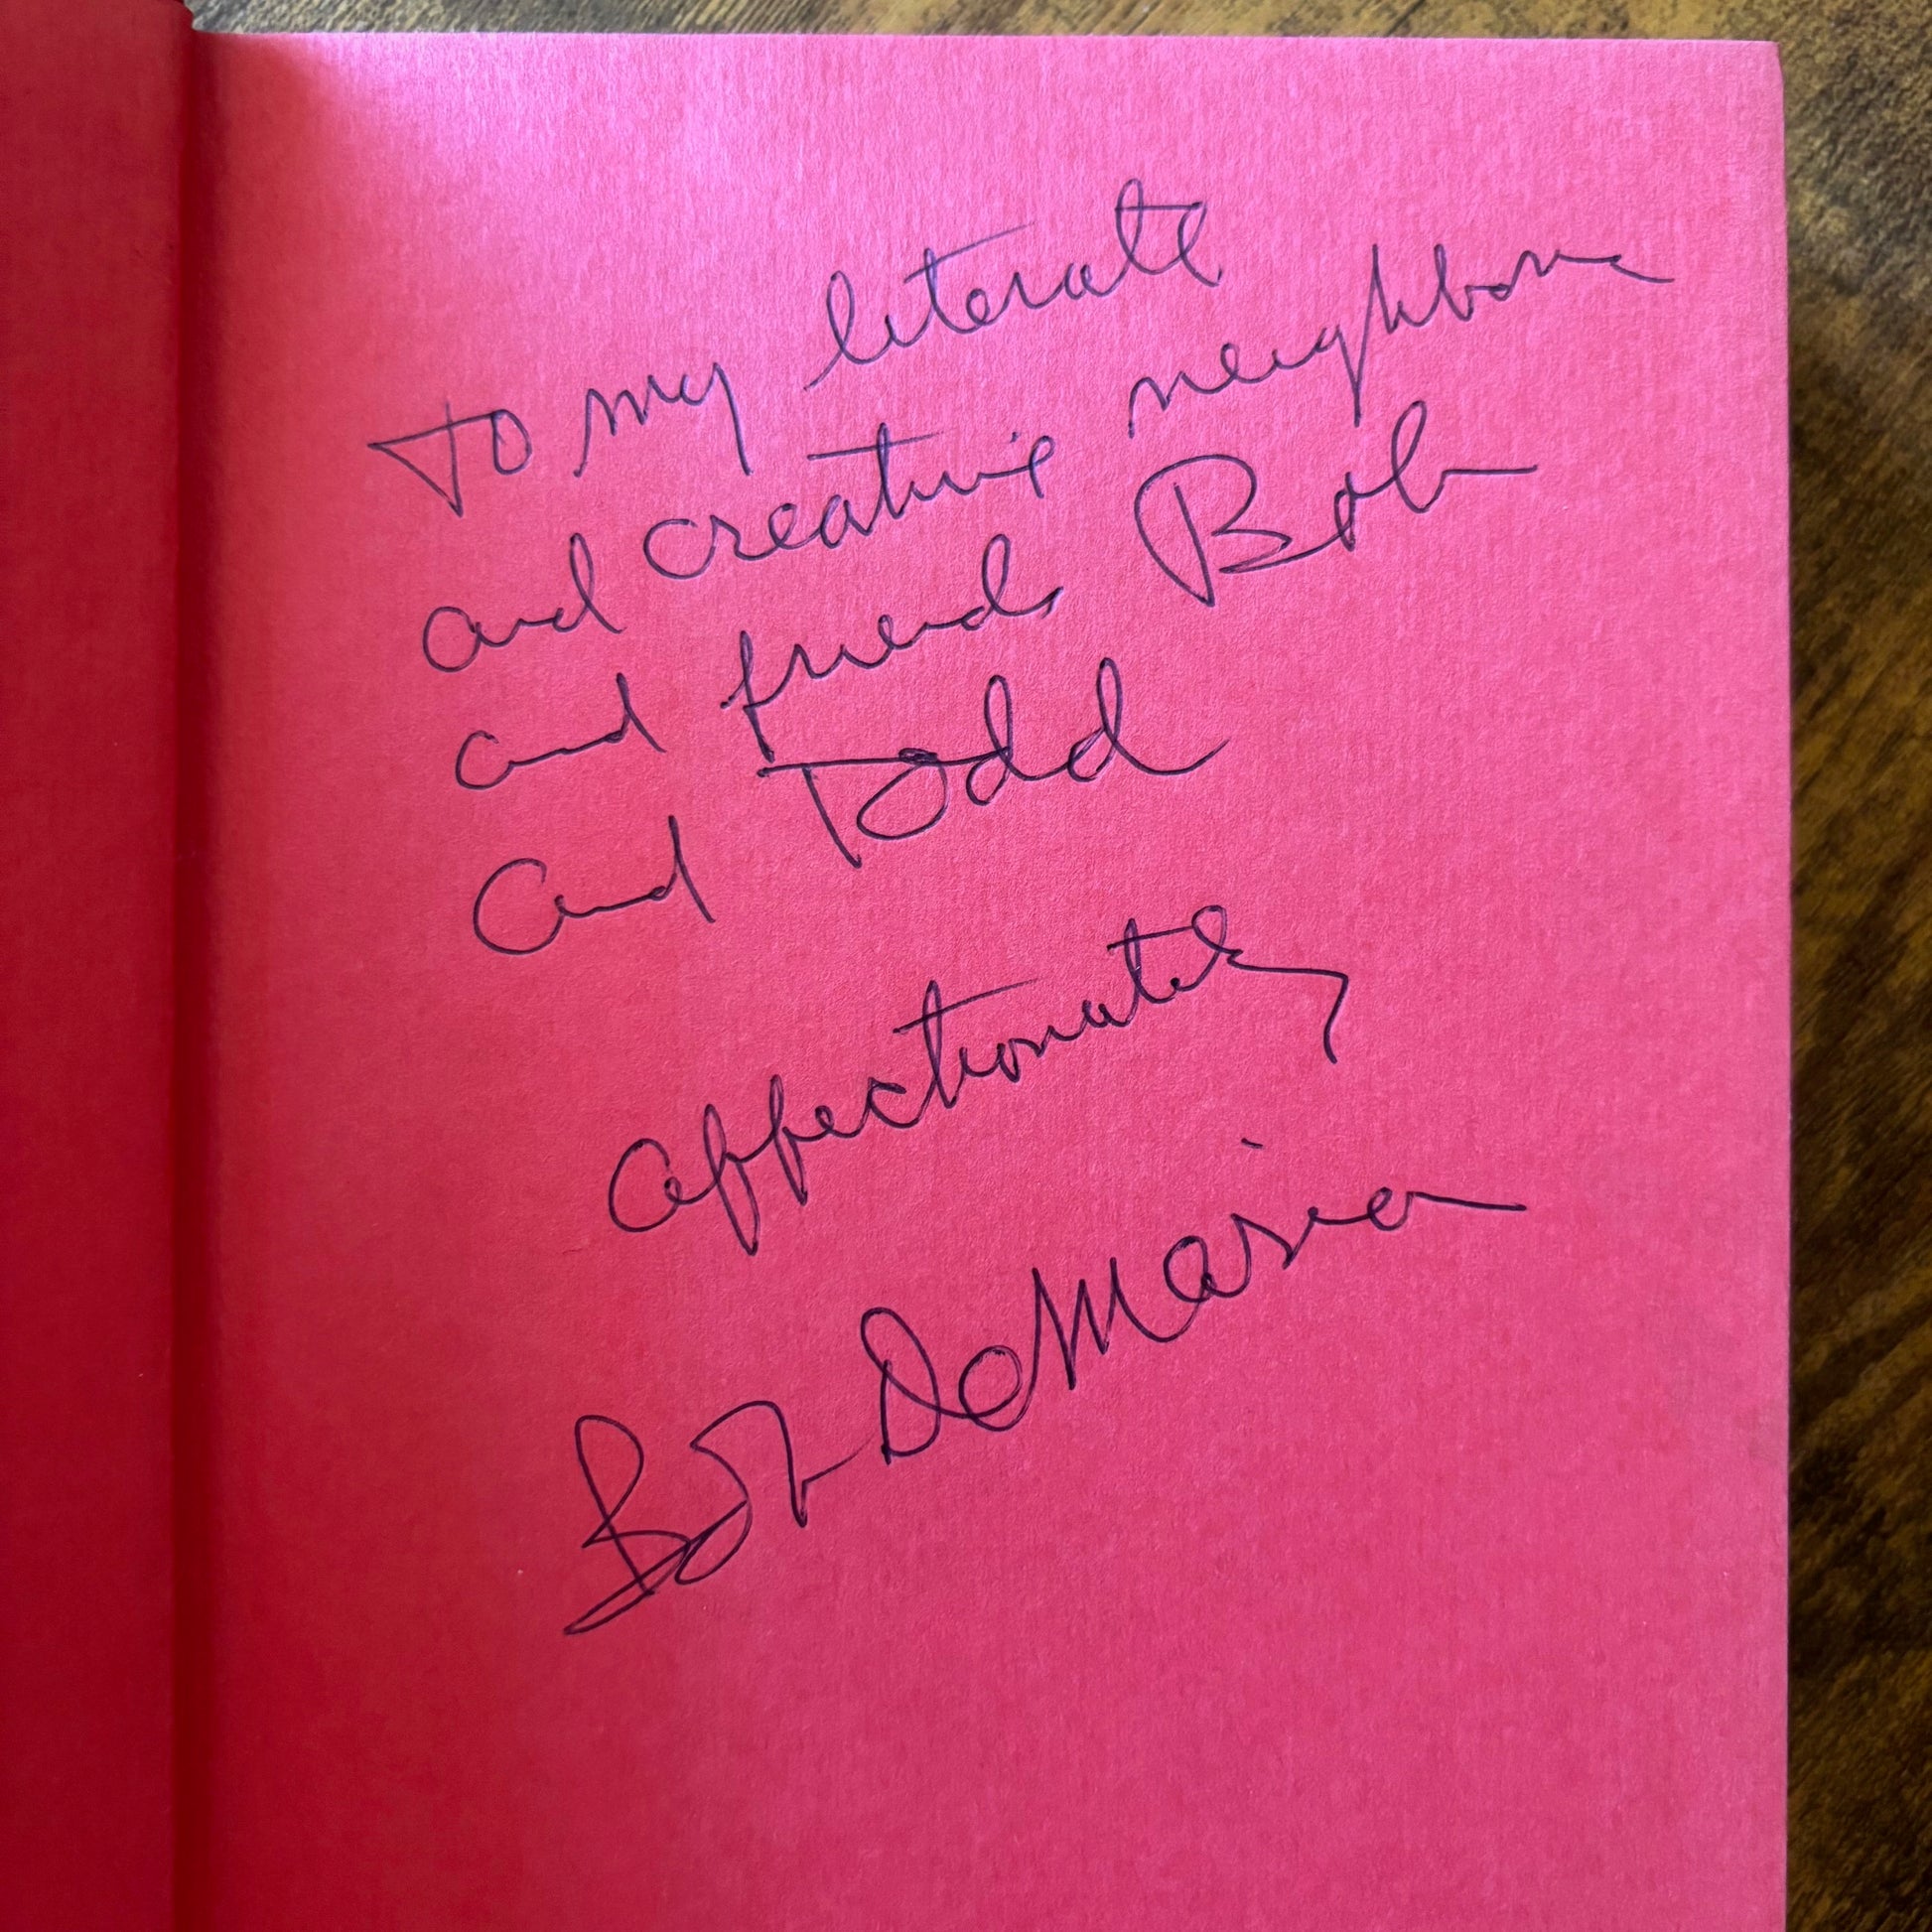 To my literate
and creative neighbors
and friends Bob
and Todd
affectionately
Bob DeMaria